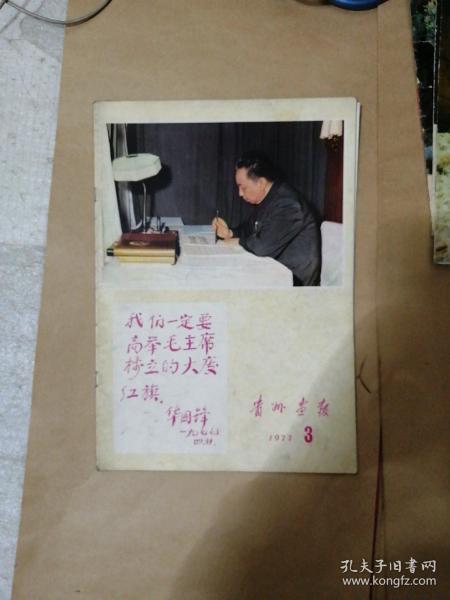 我们一定要
高举毛主席
树立的大庆
红旗。
华国锋
一九七七、
贵州画报
1977 3
孔夫子旧书网
www.kongfz.com